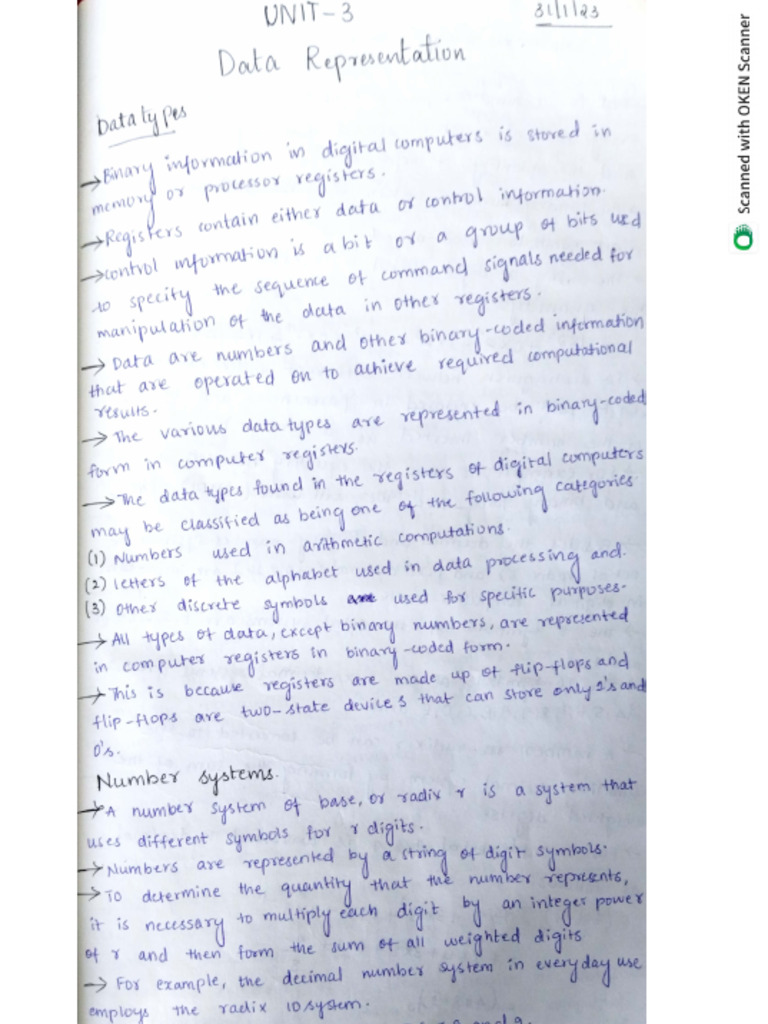 UNIT-3
31/1/23
Data Representation
Datatypes
→Binary information in digital computers is stored in
memory or processor registers.
→Registers contain either data or control information.
→control information is a bit or a group of bits used
to specify the sequence of command signals needed for
manipulation of the data in other registers.
→ Data are numbers and other binary-coded information
that are operated on to achieve required computational
results.
→ The various datatypes are represented in binary-coded
form in computer registers.
→The data types found in the registers of digital computers
may be classified as being one of the following categories
(1) Numbers used in arithmetic computations.
(2) letters of the alphabet used in data processing and.
(3) other discrete symbols used for specific purposes.
→ All types of data, except binary numbers, are represented
in computer registers in binary-coded form.
→This is because registers are made up of flip-flops and
flip-flops are two-state devices that can store only 1's and
0's.
Number systems.
→A number system of base, or radix r is a system that
uses different symbols for r digits.
→ Numbers are represented by a string of digit symbols.
→ TO determine the quantity that the number represents,
it is necessary to multiply each digit by an integer power
of r and then form the sum of all weighted digits
→ For example, the decimal number system in everyday use
employs the radix 10 system.
Scanned with OKEN Scanner